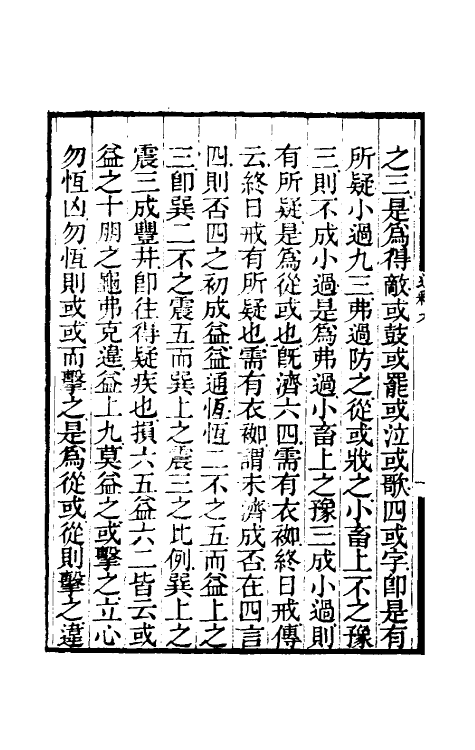 之三是爲得敵或鼓或罷或泣或歌四或字卽是有
所疑小過九三弗過防之從或戕之小畜上不之豫
三則不成小過是爲弗過小畜上之豫三成小過則
有所疑是爲從或也旣濟六四需有衣袽終日戒傳
云終日戒有所疑也需有衣袽謂未濟成否在四言
四則否四之初成益益通恆恆二不之五而益上之
三卽巽二不之震五而巽上之震三之比例巽上之
震三成豐井卽往得疑疾也損六五益六二皆云或
益之十朋之龜弗克違益上九莫益之或擊之立心
勿恆凶勿恆則或或而擊之是爲從或從則擊之違